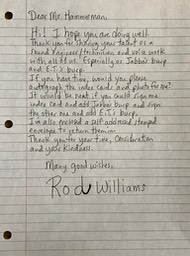 Dear Mr. Hammerman,
Hi! I hope you are doing well.
Thank you for sharing your talent as a
sound engineer/technician and voice work
with all of us. Especially as Jabba's burp
and E.T.'s burp.
If you have time, would you please
autograph the index cards and photo for me?
It would be neat if you could sign one
index card and add Jabba burp and sign
the other one and add E.T.'s burp.
I've also enclosed a self addressed stamped
envelope to return them in.
Thank you for your time, Consideration
and your kindness.
Many good wishes,
Rod Williams